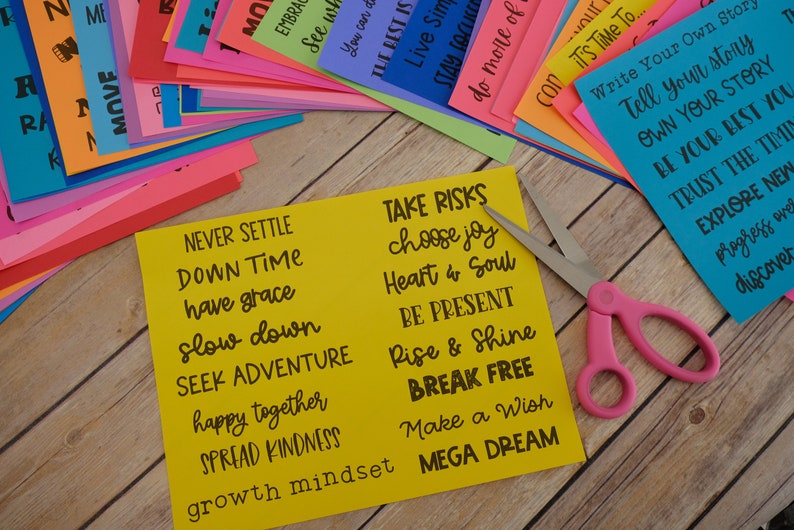 NEVER SETTLE
DOWN TIME
have grace
slow down
SEEK ADVENTURE
happy together
SPREAD KINDNESS
growth mindset
TAKE RISKS
choose joy
Heart & Soul
BE PRESENT
Rise & Shine
BREAK FREE
Make a Wish
MEGA DREAM
Write Your Own Story
Tell your story
OWN YOUR STORY
BE YOUR BEST YOU
TRUST THE TIMIN
EXPLORE NEW
progress over
discover
EMBRAC
See wh
You can d
THE BEST IS
Live Simp
STAY
do more of
iT'S TiME To...
MOVE